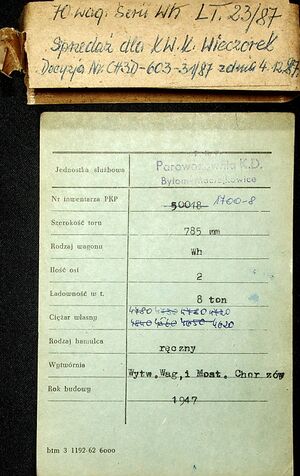 70 wag. Serii Wh LT. 23/87
Sprzedaż dla KW.K. Wieczorek
Decyzja Nr CH3D-603-31/87 z dnia 4.12.87
Jednostka służbowa Parowozownia K.D.
Bytom-Maciejkowice
Nr inwentarza PKP 50018 1700-8
Szerokość toru 785 mm
Rodzaj wagonu Wh
Ilość osi 2
Ładowność w t. 8 ton
4780 4720
Ciężar własny 4650 4620
Rodzaj hamulca ręczny
Wytwórnia Wytw.Wag,i Most. Chorzów
Rok budowy 1947
btm 3 1192-62 6000